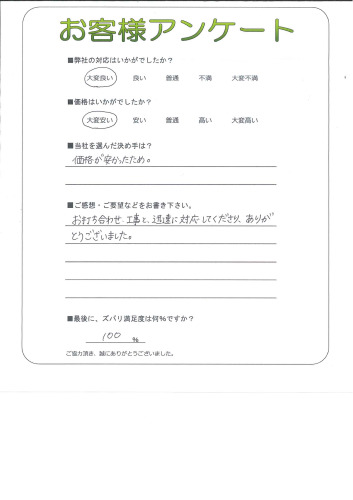 お客様アンケート
■弊社の対応はいかがでしたか？
大変良い 良い 普通 不満 大変不満
■価格はいかがでしたか？
大変安い 安い 普通 高い 大変高い
■当社を選んだ決め手は？
価格が安かったため。
■ご感想・ご要望などをお書き下さい。
お打ち合わせ、工事と、迅速に対応してくださり、ありが
とうございました。
■最後に、ズバリ満足度は何％ですか？
100 ％
ご協力頂き、誠にありがとうございました。